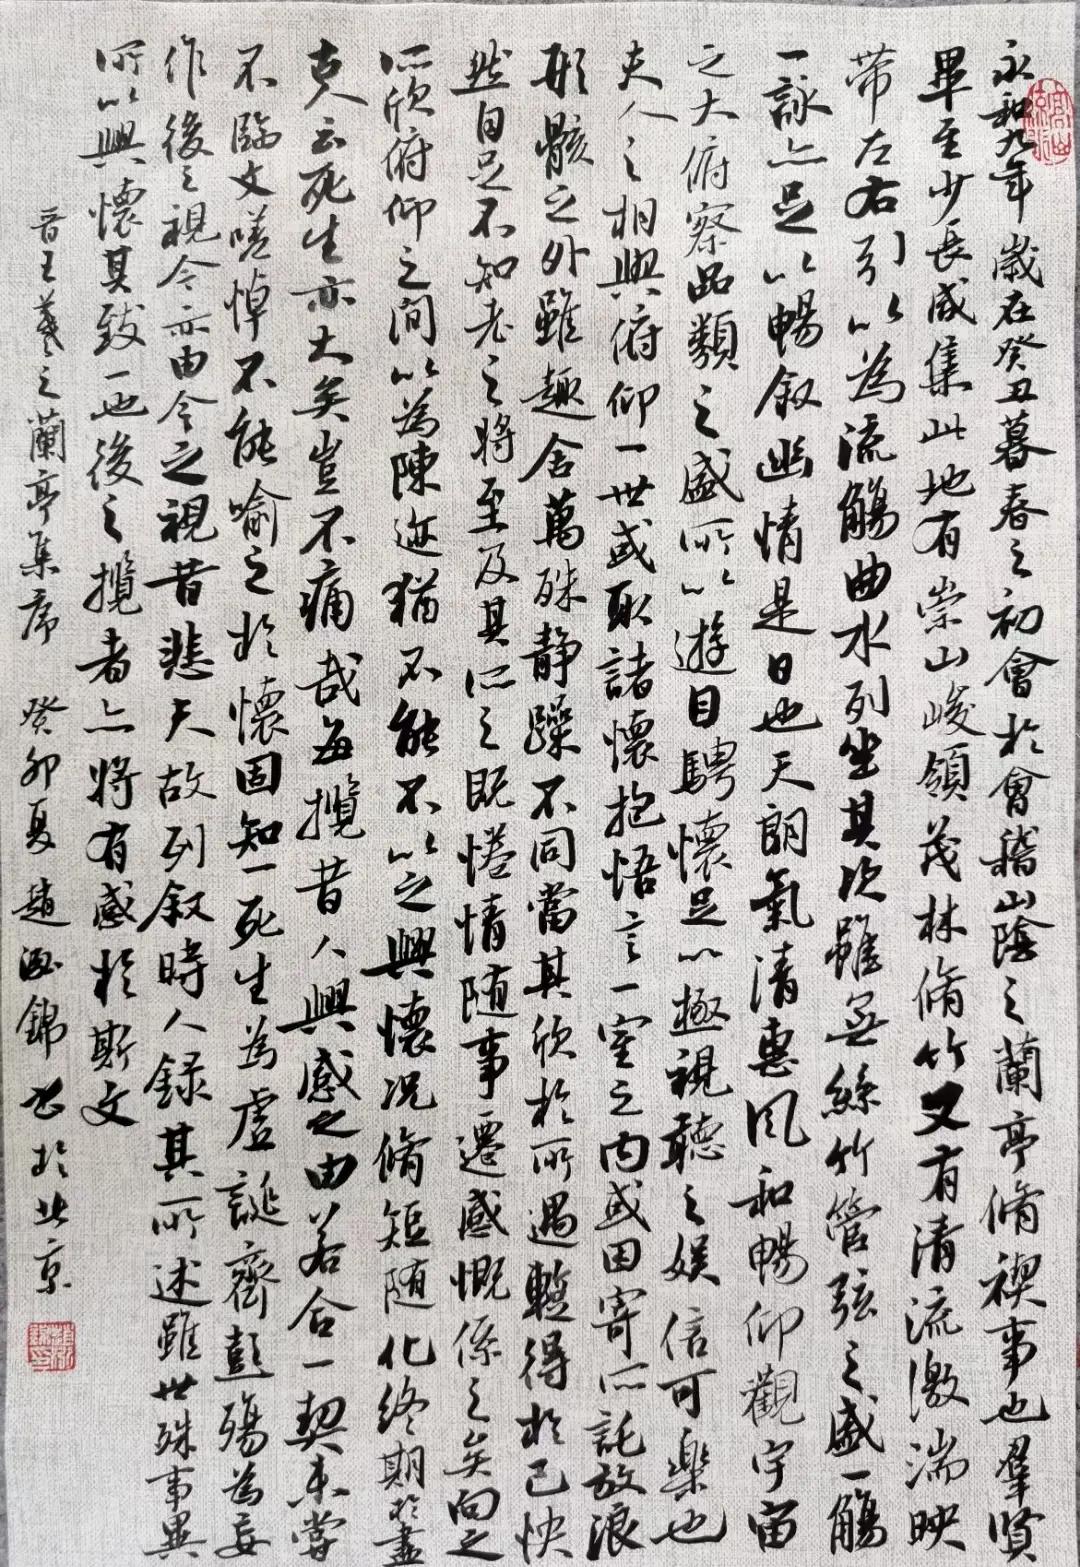 永和九年歲在癸丑暮春之初會於會稽山陰之蘭亭脩禊事也羣賢
畢至少長咸集此地有崇山峻領茂林脩竹又有清流激湍映
帶左右引以為流觴曲水列坐其次雖無絲竹管弦之盛一觴
一詠亦足以暢叙幽情是日也天朗氣清惠風和暢仰觀宇宙
之大俯察品類之盛所以遊目騁懷足以極視聽之娛信可樂也
夫人之相與俯仰一世或取諸懷抱悟言一室之内或因寄所託放浪
形骸之外雖趣舍萬殊静躁不同當其欣於所遇蹔得於己怏
然自足不知老之將至及其所之既惓情随事遷感慨係之矣向之
所欣俯仰之間以為陳迹猶不能不以之興懷况脩短随化終期於盡
克云死生亦大矣豈不痛哉每攬昔人興感之由若合一契未嘗
不臨文嗟悼不能喻之於懷固知一死生為虚誕齊彭殤為妄
作後之視今亦由今之視昔悲夫故列叙時人録其所述雖世殊事異
所以興懷其致一也後之攬者亦將有感於斯文
晉王羲之蘭亭集序 癸卯夏趙 錦書於北京